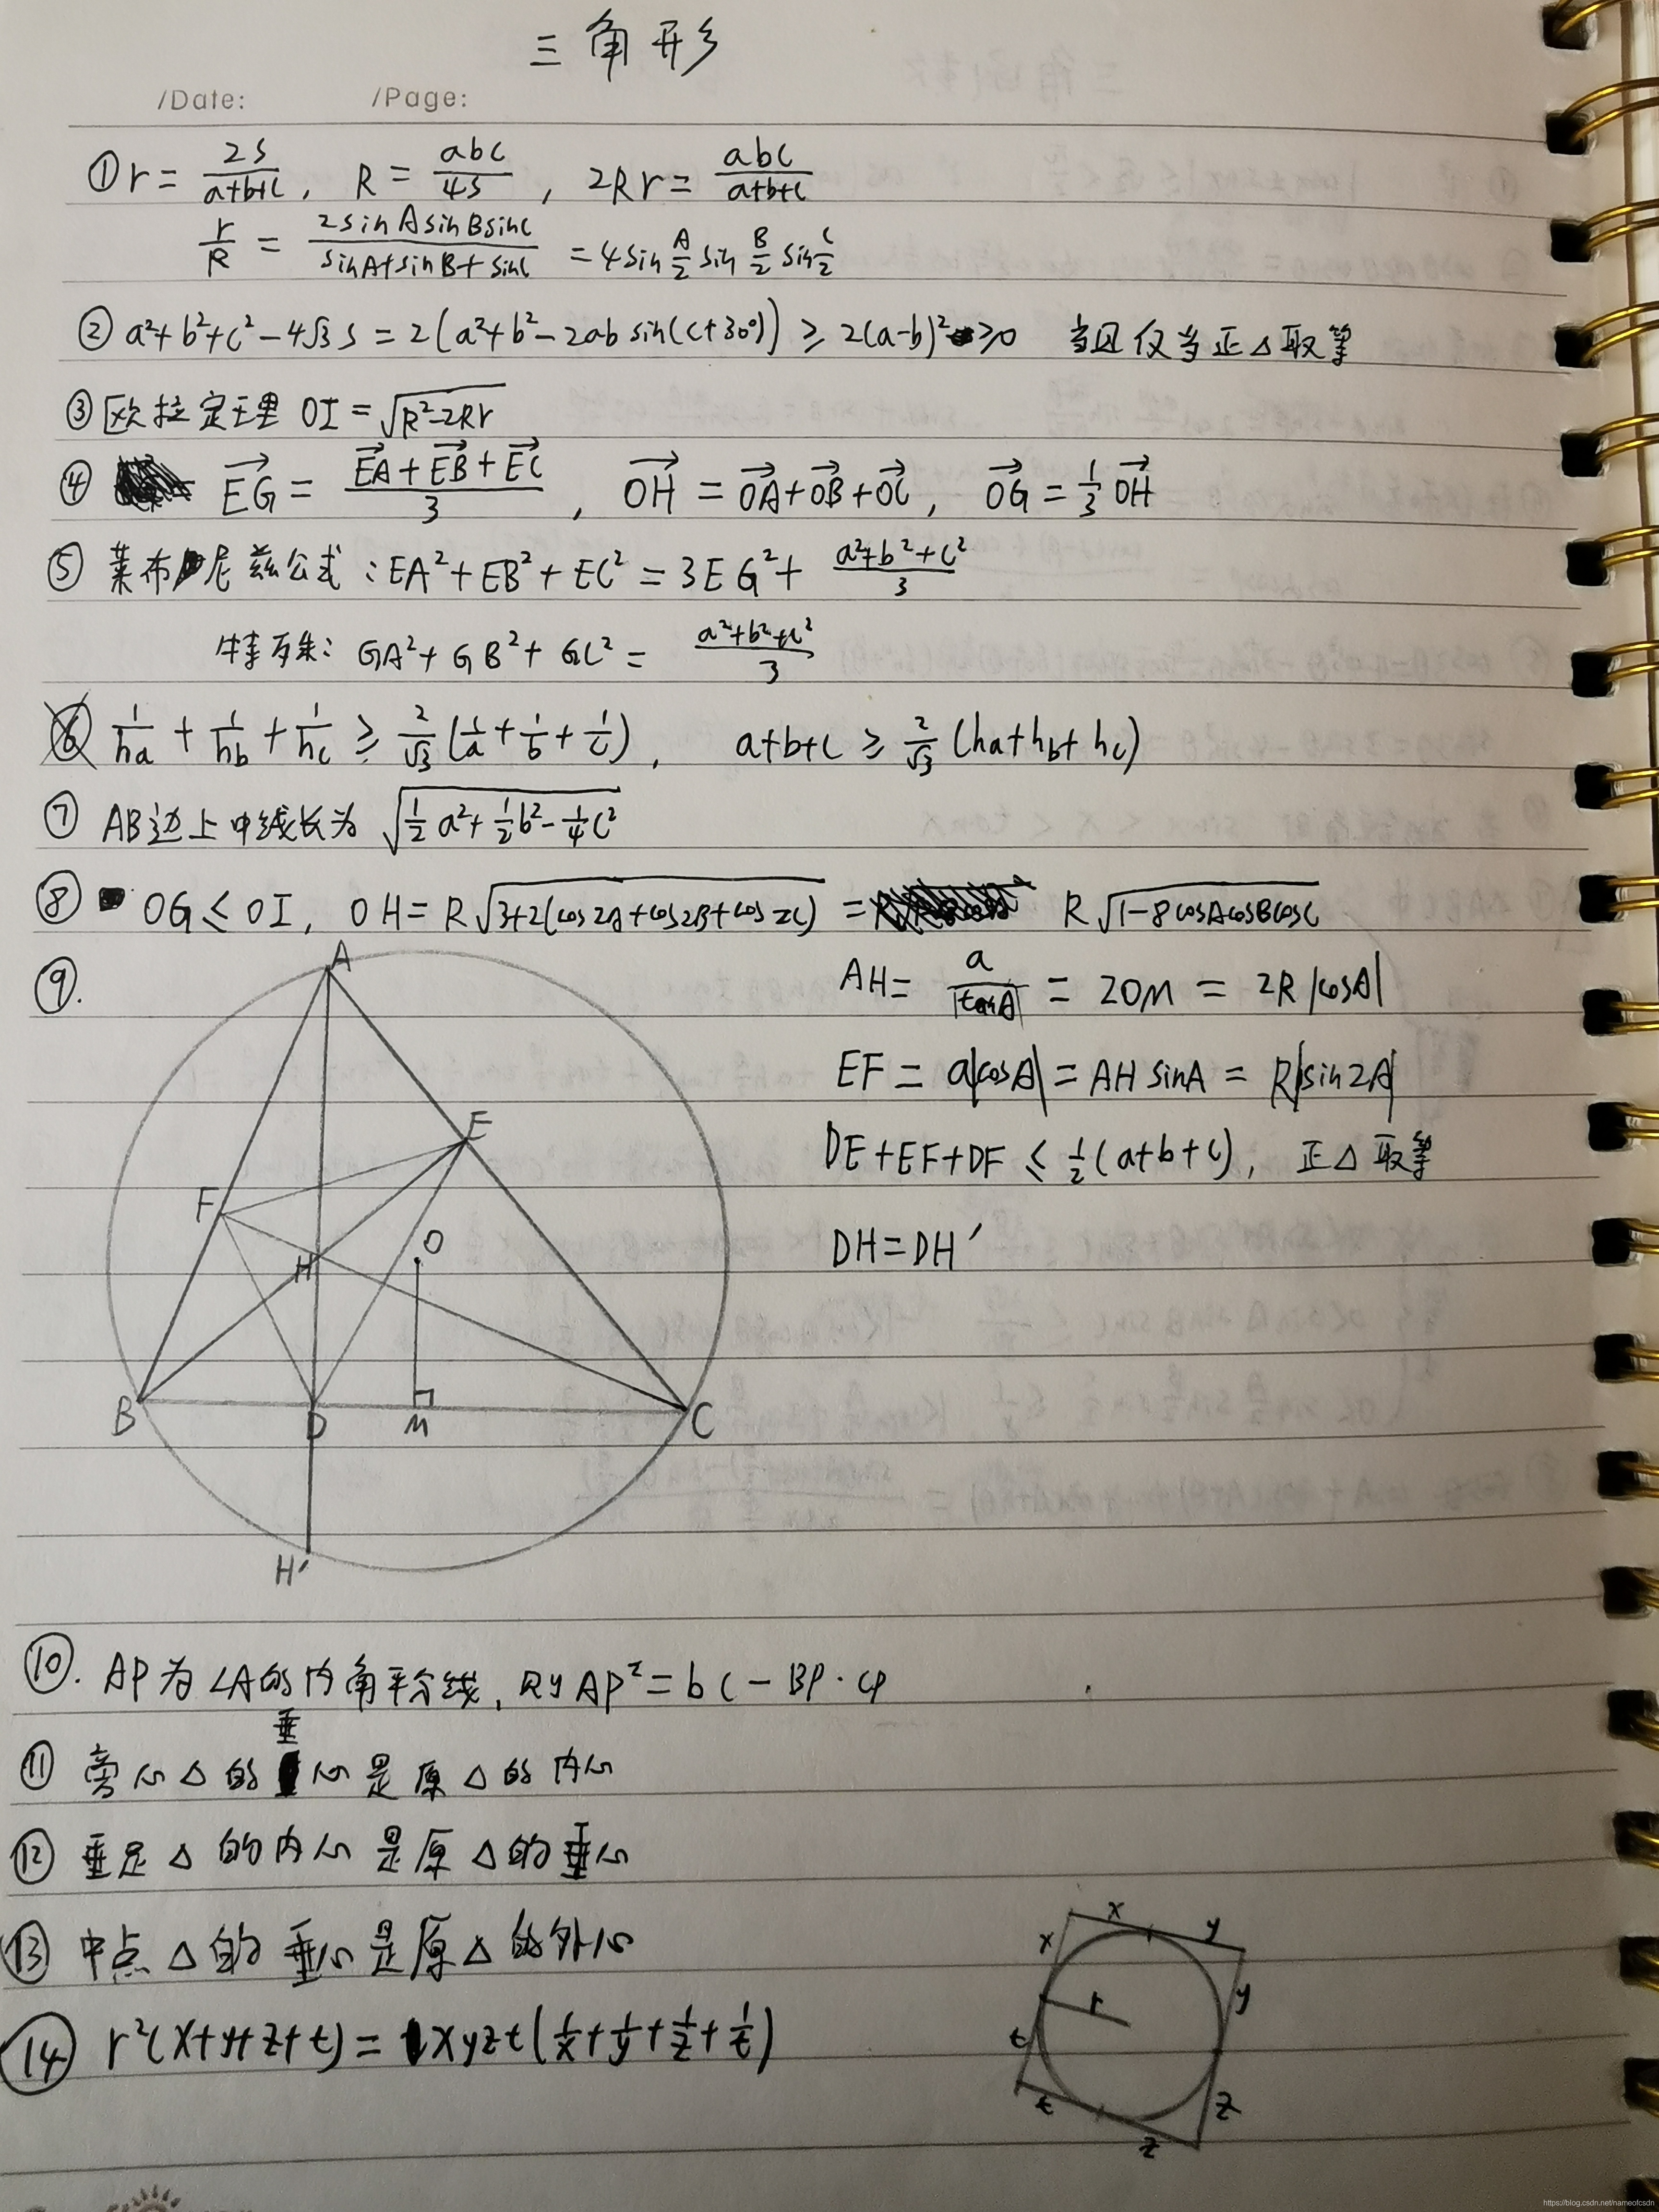 三角形
/Date: /Page:
① r = 2S/(a+b+c), R = abc/4S, 2Rr = abc/(a+b+c)
r/R = 2sinAsinBsinC/(sinA+sinB+sinC) = 4sin A/2 sin B/2 sin C/2
② a²+b²+c²-4√3 S = 2(a²+b²-2ab sin(C+30°)) ≥ 2(a-b)² ≥0 当且仅当正△取等
③ 欧拉定理 OI = √(R²-2Rr)
④ →EG = (→EA+→EB+→EC)/3, →OH = →OA+→OB+→OC, →OG = 1/3 →OH
⑤ 莱布尼兹公式:EA²+EB²+EC² = 3EG²+ (a²+b²+c²)/3
特殊: GA²+GB²+GC² = (a²+b²+c²)/3
⑥ 1/ha + 1/hb + 1/hc ≥ 2/√3 (1/a+1/b+1/c), a+b+c ≥ 2/√3 (ha+hb+hc)
⑦ AB边上中线长为 √(1/2 a²+1/2 b²-1/4 c²)
⑧ OG ≤ OI, OH = R√(3+2(cos2A+cos2B+cos2C)) = R√(1-8cosAcosBcosC)
⑨.
AH = a/|tanA| = 2OM = 2R|cosA|
EF = a|cosA| = AH sinA = R|sin2A|
DE+EF+DF ≤ 1/2(a+b+c), 正△取等
DH=DH′
A
E
F
H
O
B
D
M
C
H′
⑩. AP为∠A的内角平分线, 则AP²=bc-BP·CP
⑪ 旁心△的垂心是原△的内心
⑫ 垂足△的内心是原△的垂心
⑬ 中点△的垂心是原△的外心
⑭ r²(x+y+z+t) = xyzt(1/x+1/y+1/z+1/t)
x
y
x
y
r
t
t
z
z
https://blog.csdn.net/nameofcsdn